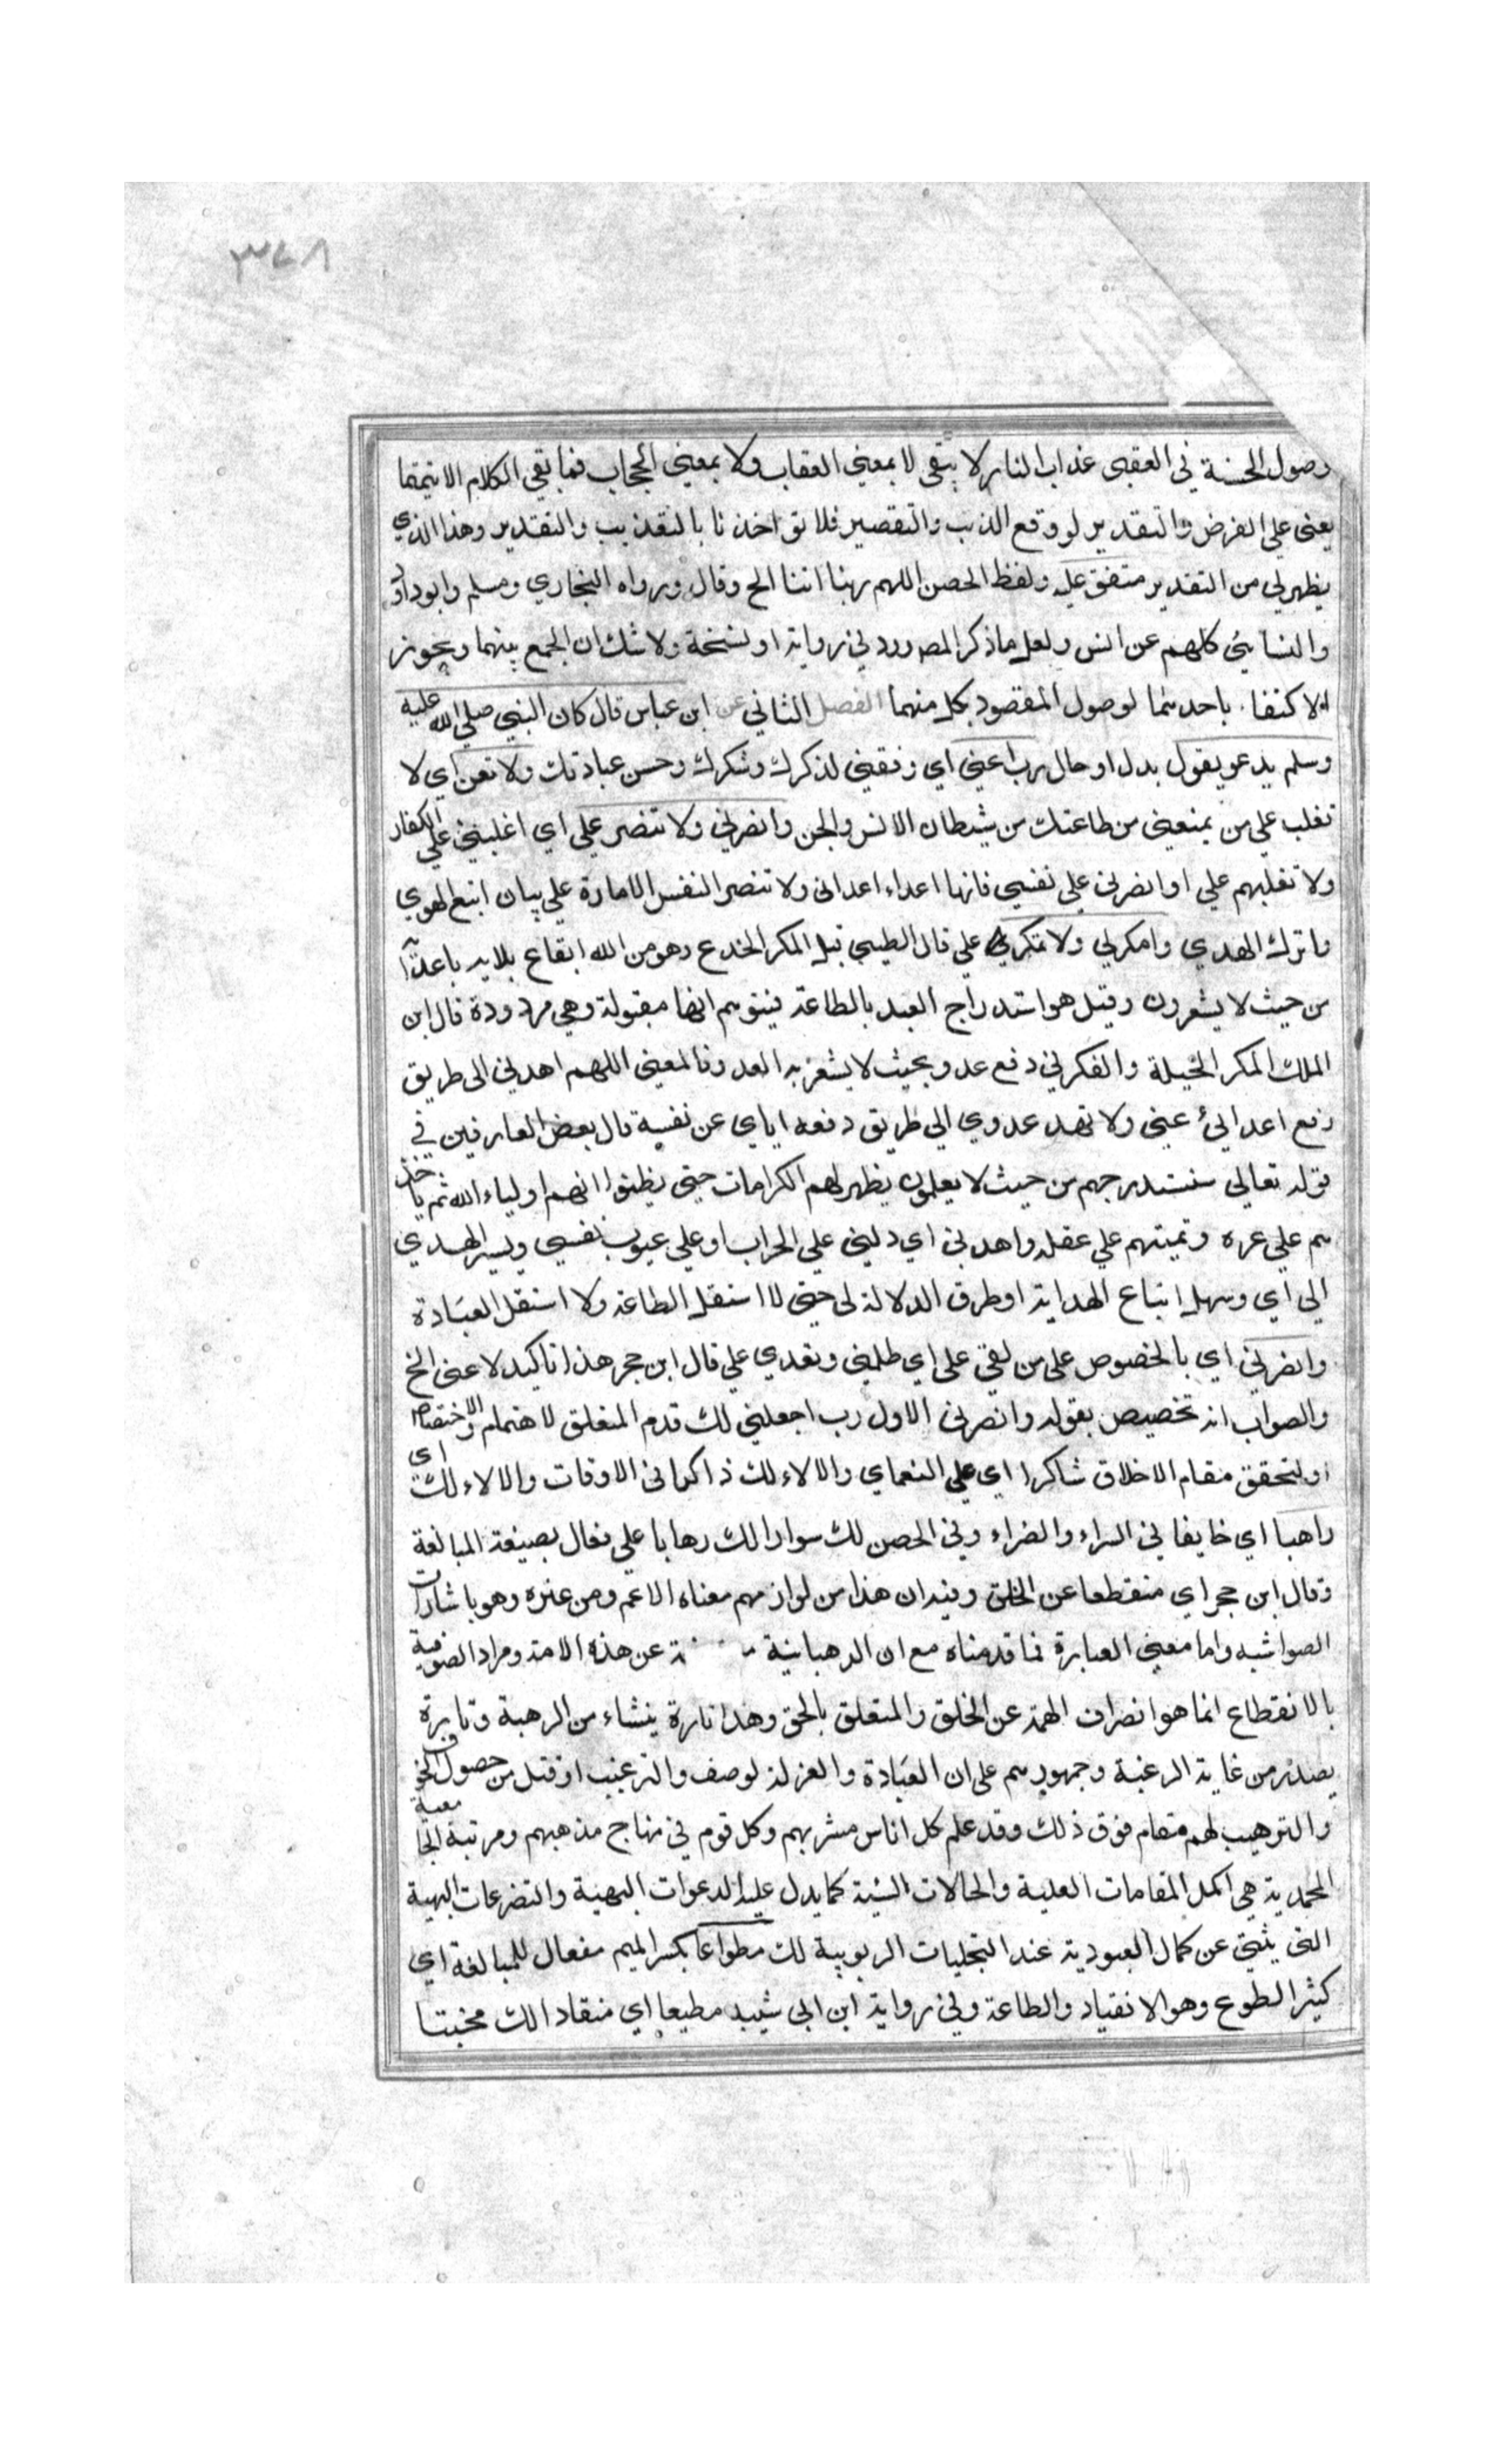 ٣٤٨
وصول الحسنة في العقبى عذاب النار لا يبقى لا بمعنى العقاب ولا بمعنى الحجاب فما بقي الكلام الا تيمقما
يعني على الفرض والتقدير لو وقع الذنب والتقصير فلا تؤاخذنا بالتعذيب والتقدير وهذا الذي
يظهر لي من التقدير متفق عليه ولفظ الحصن اللهم ربنا اتنا الخ وقال ورواه البخاري ومسلم وابو داود
والنسائي كلهم عن انس ولعل ما ذكر المص ورد في رواية او نسخة ولا شك ان الجمع بينهما ويجوز
الاكتفا باحدهما لوصول المقصود بكل منهما الفصل الثاني عن ابن عباس قال كان النبي صلي الله عليه
وسلم يدعو يقول بدل او حال رب اعني اي وفقني لذكرك وشكرك وحسن عبادتك ولا تعن اي لا
تغلب علي من يمنعني من طاعتك من شيطان الانس والجن وانصرني ولا تنصر علي اي اغلبني علي الكفار
ولا تغلبهم علي او انصرني علي نفسي فانها اعداء اعدائي ولا تنصر النفس الامارة علي بان اتبع الهوي
واترك الهدي وامكر لي ولا تمكر علي قال الطيبي قيل المكر الخدع وهو من الله ايقاع بلايه باعدآ
من حيث لا يشعرون وقيل هو استدراج العبد بالطاعة فيتوهم انها مقبولة وهي مردودة قال ابن
الملك المكر الحيلة والفكر في دفع عدو بحيث لا يشعر به العدو فالمعنى اللهم اهدني الى طريق
دفع اعدائي عني ولا تهد عدوي الي طريق دفعه اياي عن نفسه قال بعض العارفين في
قوله تعالي سنستدرجهم من حيث لا يعلمون يظهر لهم الكرامات حتي يظنوا انهم اولياء الله ثم ياخذ
هم علي غره وتميتهم علي غفله واهدني اي دلني علي الخراب او علي عيوب نفسي ويسر الهدي
الي اي وسهل اتباع الهداية او طرق الدلالة لي حتى لا استثقل الطاعة ولا استثقل العبادة
وانصرني اي بالخصوص على من بغى علي اي ظلمني وتعدي علي قال ابن حجر هذا تاكيد لاعنى الخ
والصواب انه تخصيص بقوله وانصرني الاول رب اجعلني لك قدم المتعلق للاهتمام والاختصاص
او لتحقق مقام الاخلاق شاكرا اي علي النعماي والالاء لك ذاكرا في الاوقات والالاء لك اي
راهبا اي خايفا في السراء والضراء وفي الحصن لك سوارا لك رهابا علي فعال بصيغة المبالغة
وقال ابن حجر اي منقطعا عن الخلق وفيه ان هذا من لوازمهم معناه الاعم ومن غيره وهو باشارات
الصواشبه واما معنى العبارة فما قدمناه مع ان الرهبانية عن هذه الامة ومراد الصوفية
بالانقطاع انما هو انصراف الهمة عن الخلق والمتعلق بالحق وهذا تارة ينشاء من الرهبة وتارة
يصدر من غاية الرغبة وجمهورهم على ان العبادة والعزلة لوصف والترغيب اوقتل من حصول الخوف
والترهيب لهم مقام فوق ذلك وقد علم كل اناس مشربهم وكل قوم في منهاج مذهبهم ومرتبة الجامعية
المحمدية هي اكمل المقامات العلية والحالات السنية كما يدل عليه الدعوات البهية والتضرعات البهية
التي ينبئ عن كمال العبودية عند التجليات الربوبية لك مطواعا بكسر الميم مفعال للمبالغة اي
كثير الطوع وهو الانقياد والطاعة وفي رواية ابن ابي شيبه مطيعا اي منقادا لك مخبتا